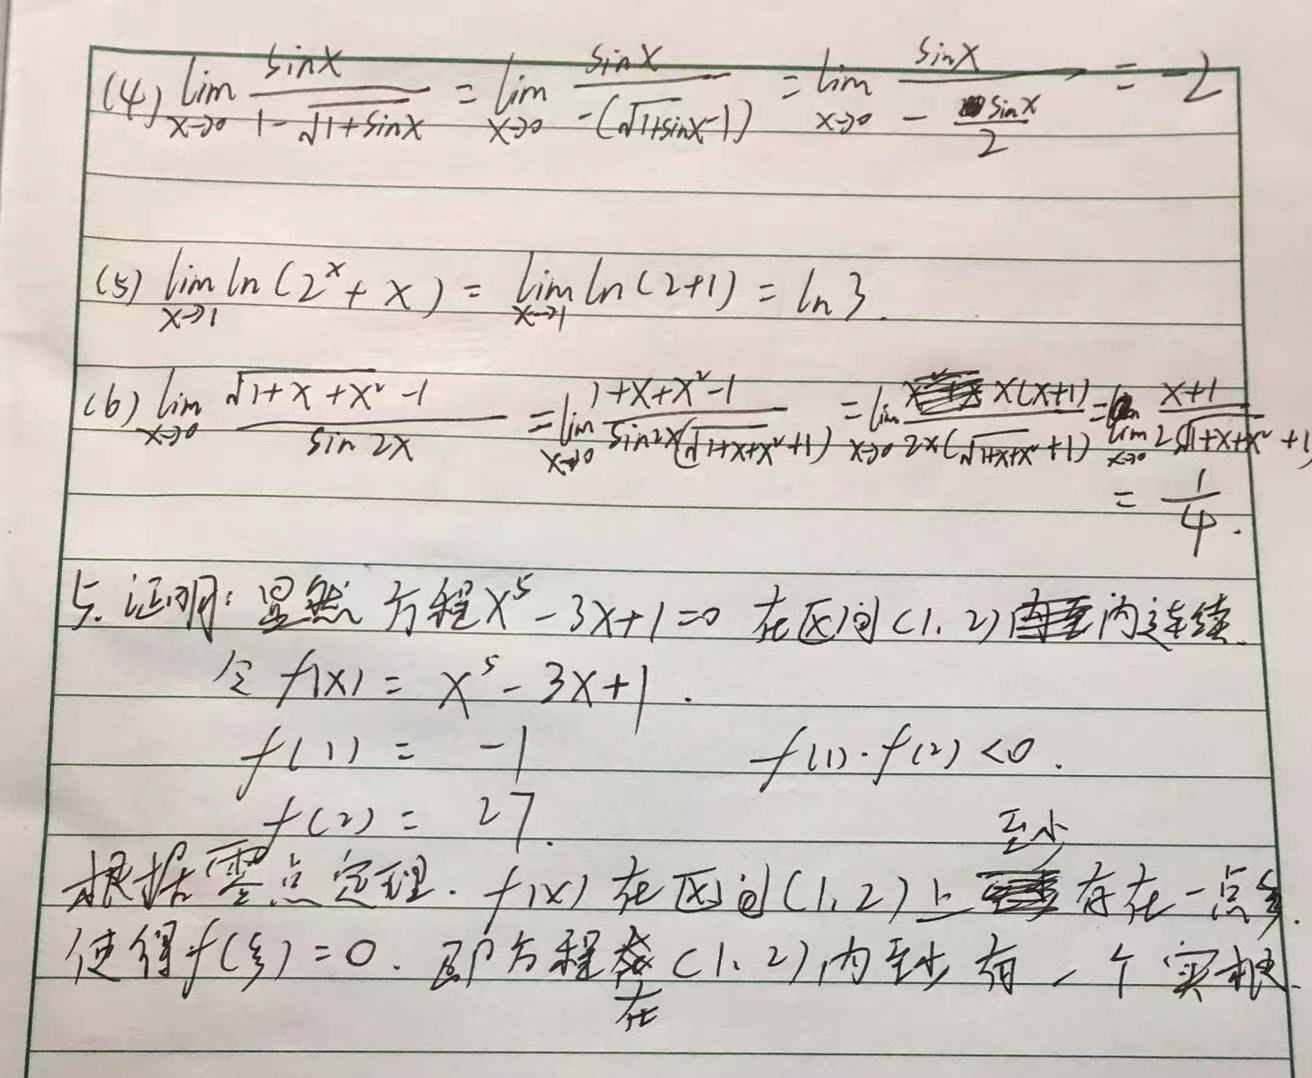 (4) lim x→0 sinx/(1-√(1+sinx)) = lim x→0 sinx/(-(√(1+sinx)-1)) = lim x→0 sinx/(-sinx/2) = -2
(5) lim x→1 ln(2^x+x) = lim x→1 ln(2+1) = ln3.
(6) lim x→0 (√(1+x+x²)-1)/sin2x = lim x→0 (1+x+x²-1)/(sin2x(√(1+x+x²)+1)) = lim x→0 x(x+1)/(2x(√(1+x+x²)+1)) = lim x→0 (x+1)/(2(√(1+x+x²)+1)
= 1/4.
5. 证明: 显然 方程x⁵-3x+1=0 在区间(1,2)内连续.
令 f(x) = x⁵-3x+1.
f(1) = -1 f(1)·f(2)<0.
f(2) = 27.
根据零点定理. f(x)在区间(1,2)上至少存在一点ξ.
使得f(ξ)=0. 即方程在(1,2)内至少有一个实根.